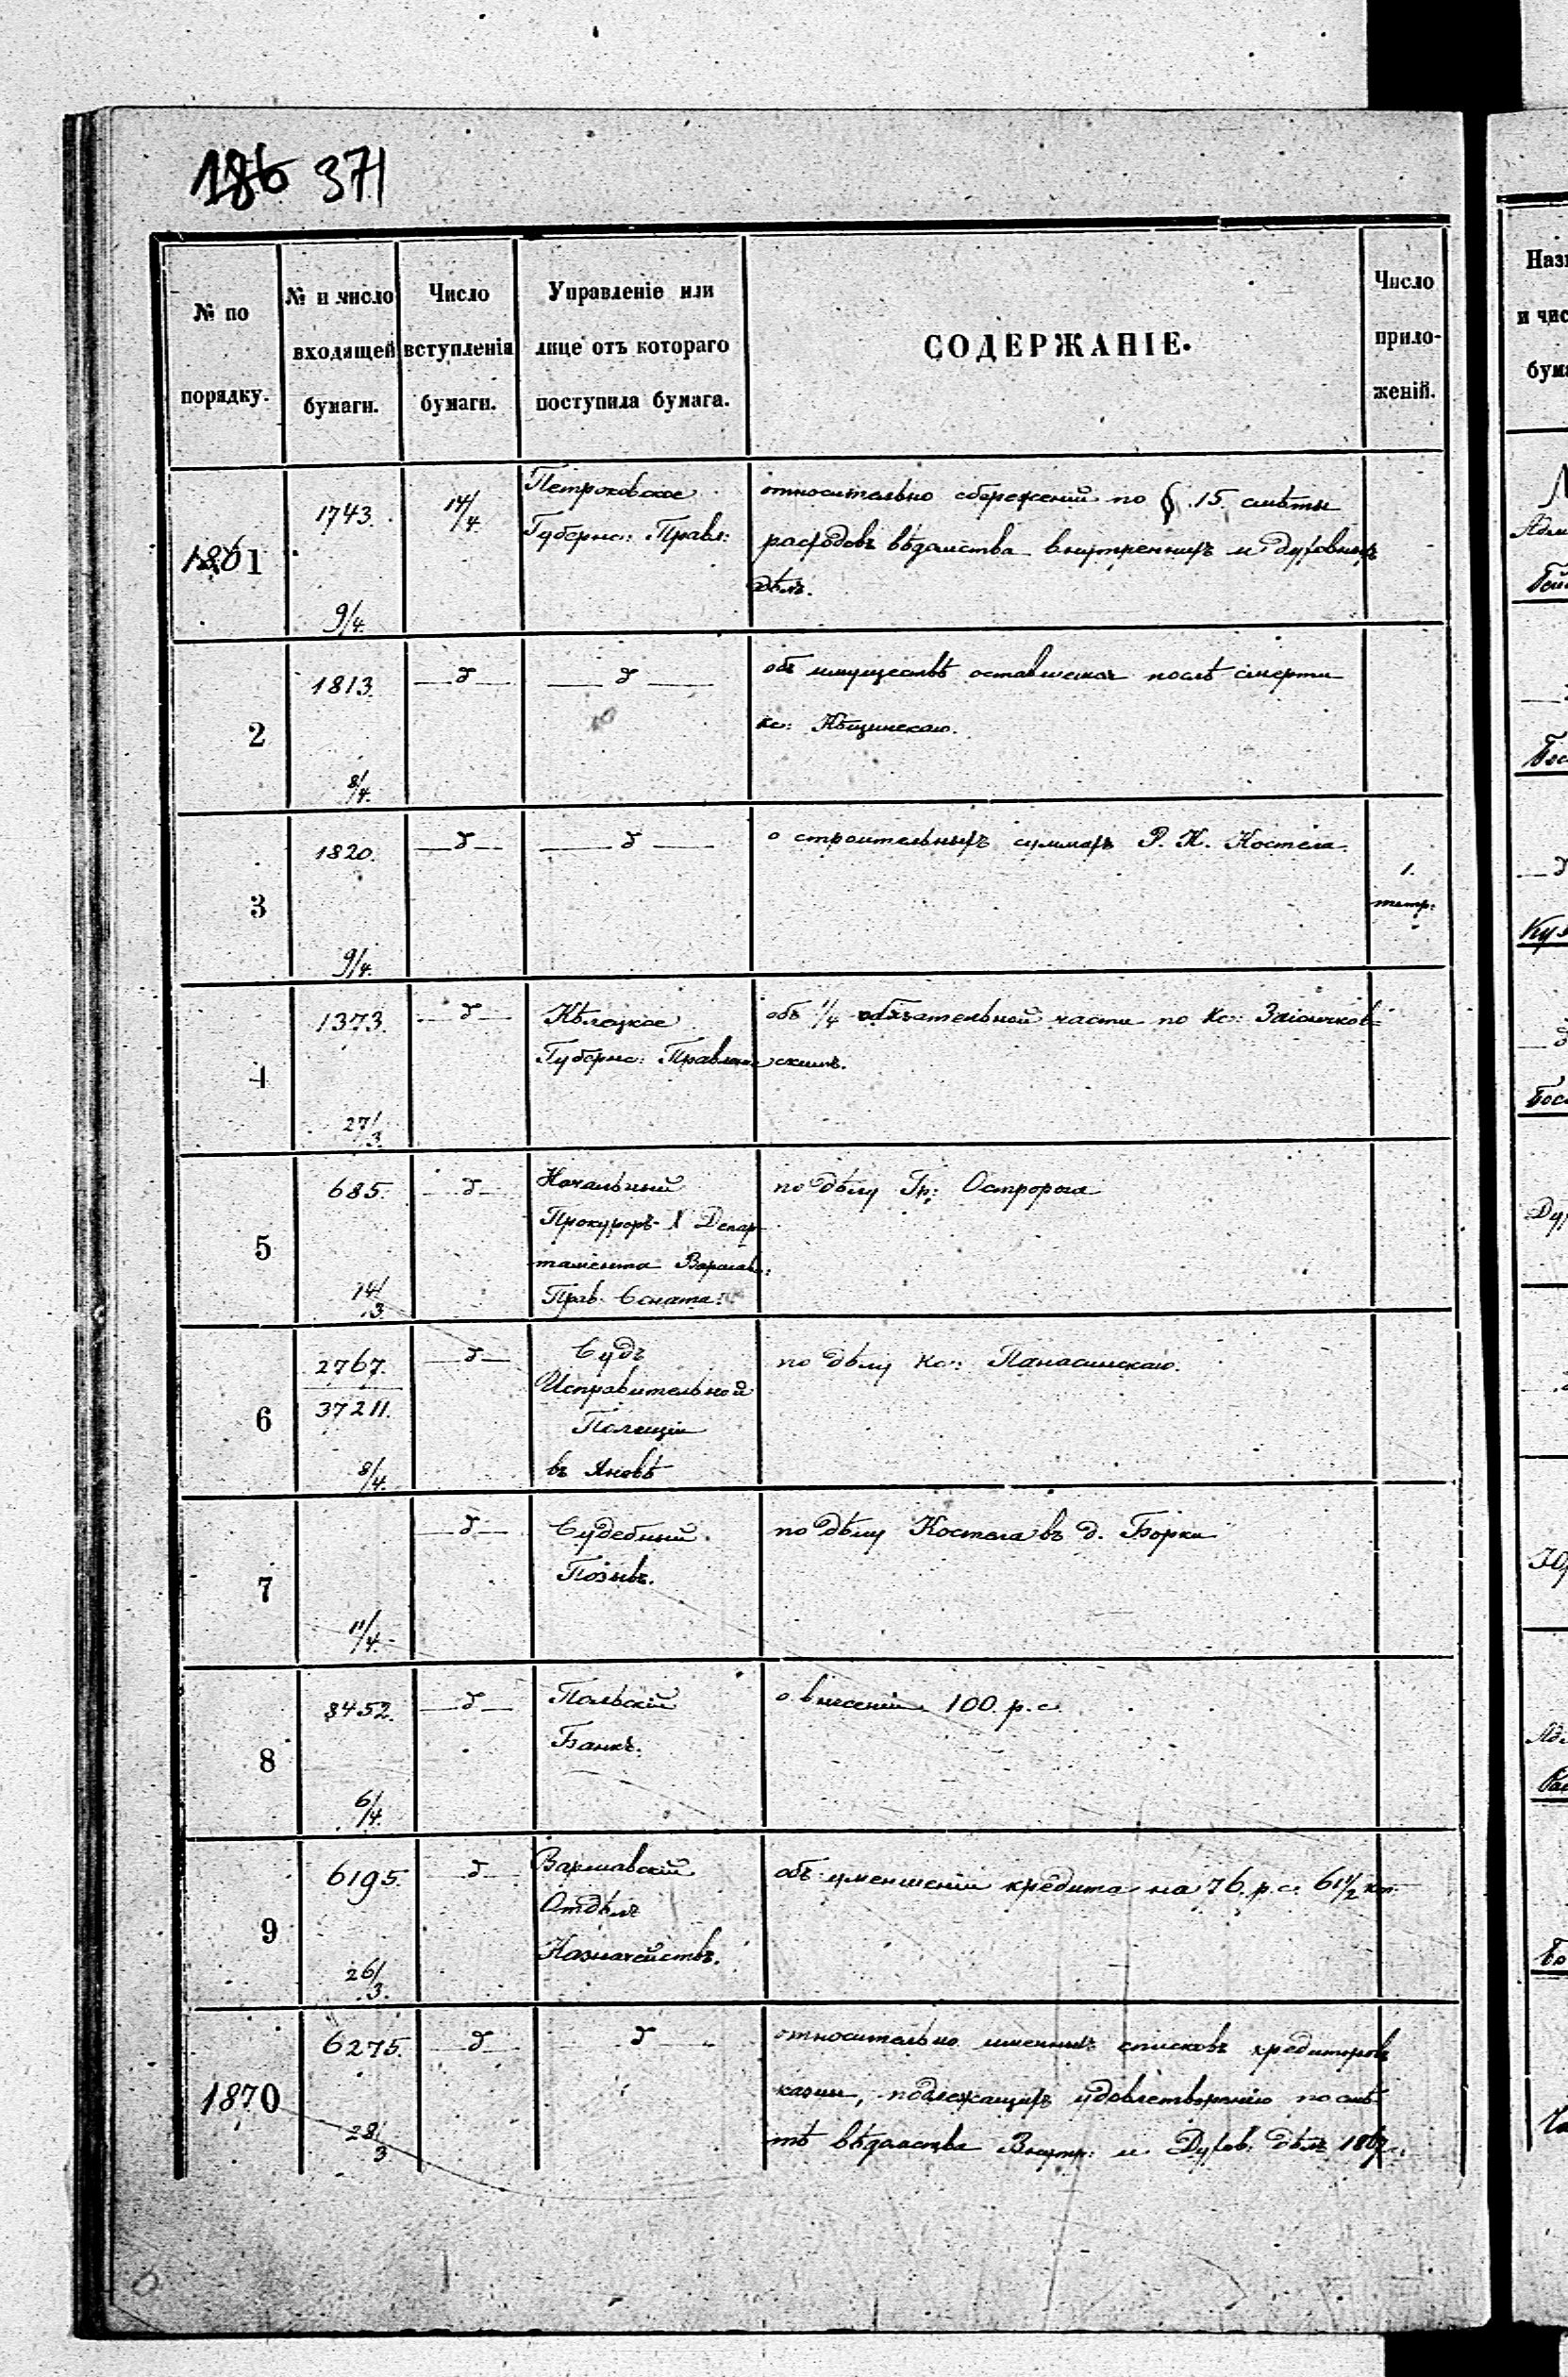 186 371
№ по порядку.
№ и число входящей бумаги.
Число вступленія бумаги.
Управленіе или лице отъ котораго поступила бумага.
СОДЕРЖАНІЕ.
Число прило-женій.
1861
1743.
9/4.
14/4.
Петроковское
Губернс: Правл:
относительно сбереженій по § 15 смѣты
расходовъ вѣдомства внутреннихъ и духовныхъ
дѣлъ.
2
1813.
8/4.
— д —
— д —
объ имуществѣ оставшемся послѣ смерти
кс:
3
1820.
9/4.
— д —
— д —
о строительныхъ суммахъ Р. К. Костела.
1.
тетр:
4
1373.
27/3.
— д —
Кѣлецкое
Губернс: Правлен:
объ 1/4 обязательной части по Кс:
скимъ.
5
685.
14/3
— д —
Начальный
Прокуроръ X Депар
тамента Варшав:
Прав. Сената:
по дѣлу Гр: Остророга
6
2767.
37211.
8/4.
— д —
Судъ
Исправительной
Полиціи
въ Яновѣ
по дѣлу Кс: Панасинскаго.
7
11/4.
— д —
Судебный
Позывъ.
по дѣлу Костела въ д. Борки
8
8452.
6/4.
— д —
Польскій
Банкъ.
о внесеніи 100 р. с.
9
6195.
26/3.
— д —
Варшавскій
Отдѣлъ
Казначействъ.
объ уменшеніи кредита на 76. р. с. 61 1/2 коп.
1870
6275.
28/3
— д —
— д —
относительно именныхъ списковъ кредиторовъ
казны, подлежащихъ удовлетворенію по смѣ
тѣ вѣдомства Внутр: и Духов: дѣлъ 1867.